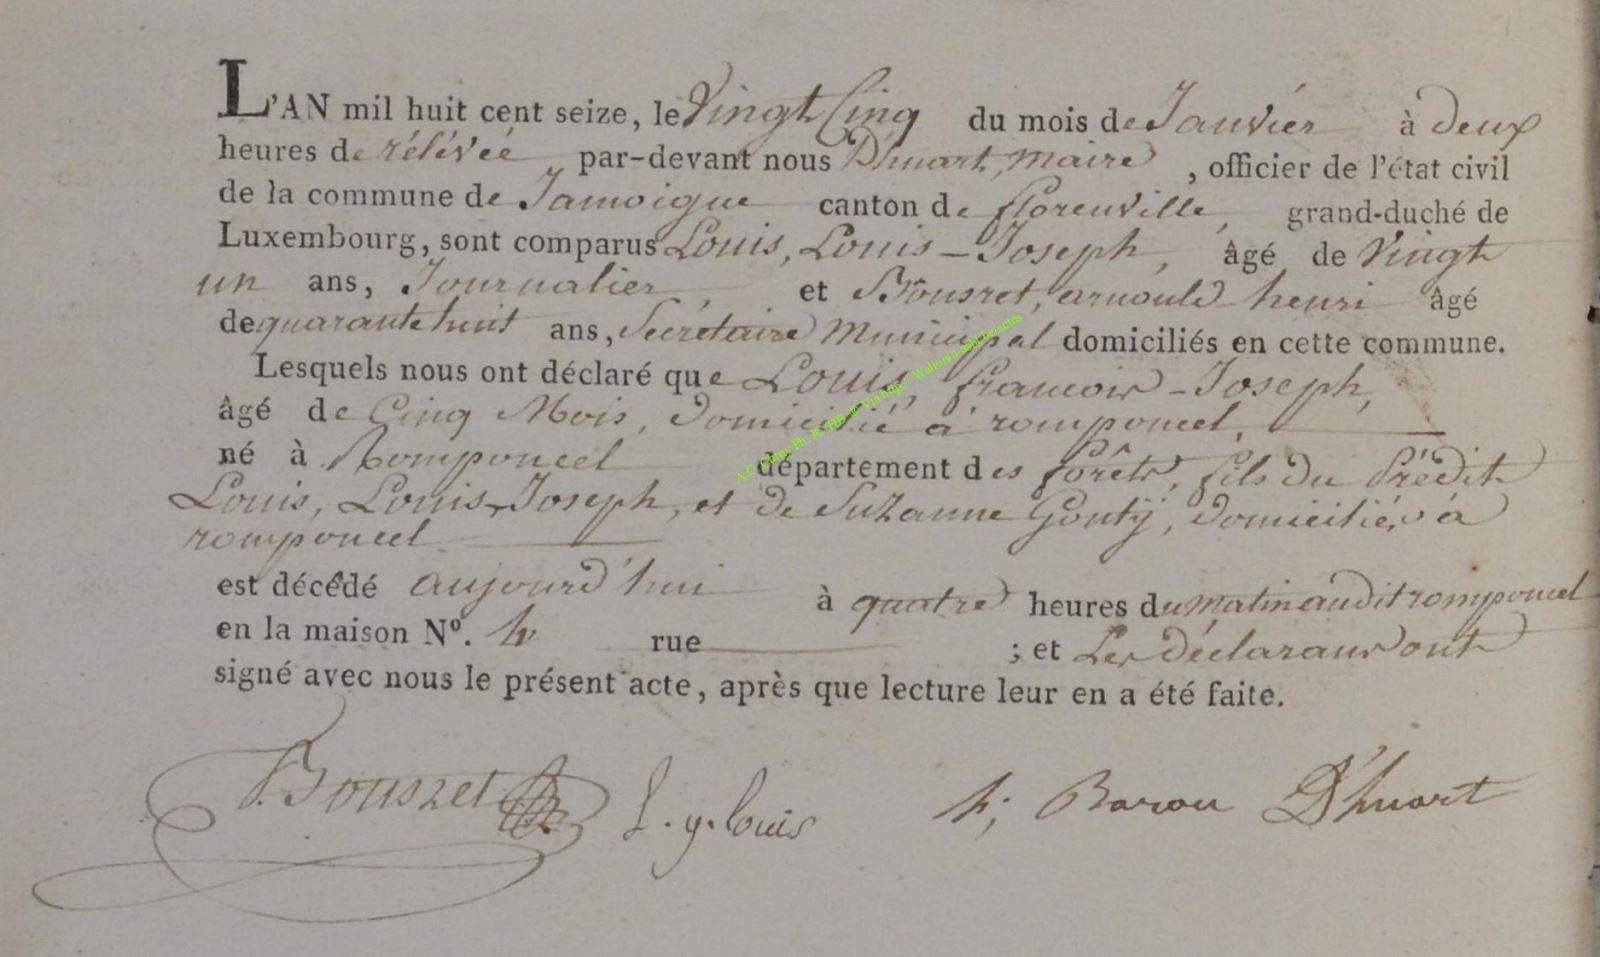 L'AN mil huit cent seize, le Vingt Cinq du mois de Janvier à deux
heures de rélévée par-devant nous D'huart, maire, officier de l'état civil
de la commune de Jamoigne canton de florenville, grand-duché de
Luxembourg, sont comparus Louis, Louis-Joseph, âgé de Vingt
un ans, Journalier, et Bousret, arnould henri âgé
de quarante huit ans, Secrétaire Municipal domiciliés en cette commune.
Lesquels nous ont déclaré que Louis, francois-Joseph,
âgé de Cinq Mois, domicilié à romponcel,
né à Romponcel département des forêts, fils du Prédit
Louis, Louis-Joseph, et de Suzanne Gontÿ, domiciliés à
romponcel
est décédé aujourd'hui à quatre heures du matin audit romponcel
en la maison Nº. 4 rue ; et Les déclarans ont
signé avec nous le présent acte, après que lecture leur en a été faite.
Bousret L. y. louis h; Baron D'huart